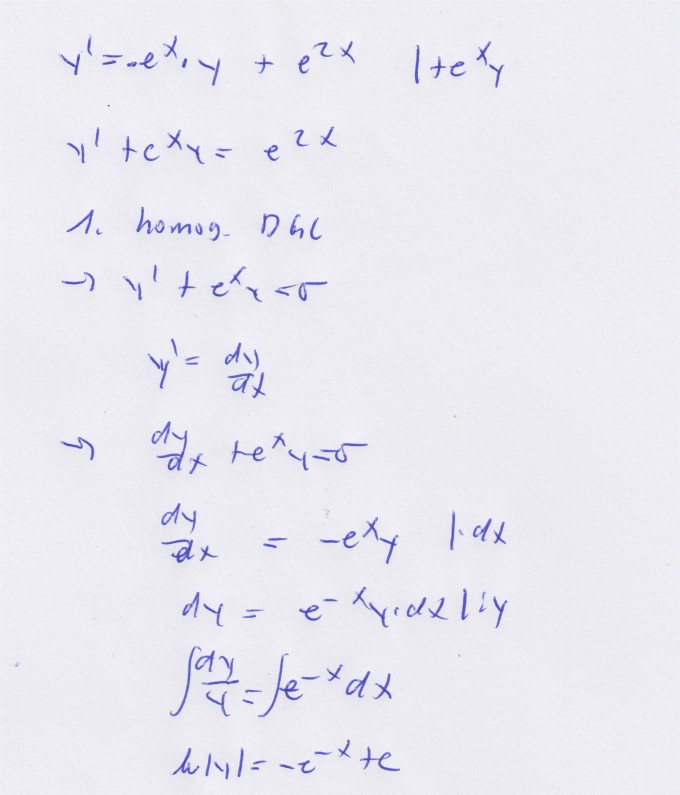 y' = -eˣ · y + e²ˣ | +eˣy
y' + eˣy = e²ˣ
1. homog. DGL
→ y' + eˣy = 0
y' = dy/dx
→ dy/dx + eˣy = 0
dy/dx = -eˣy | · dx
dy = e⁻ˣy · dx | : y
∫ dy/y = ∫ e⁻ˣ dx
ln|y| = -e⁻ˣ + c